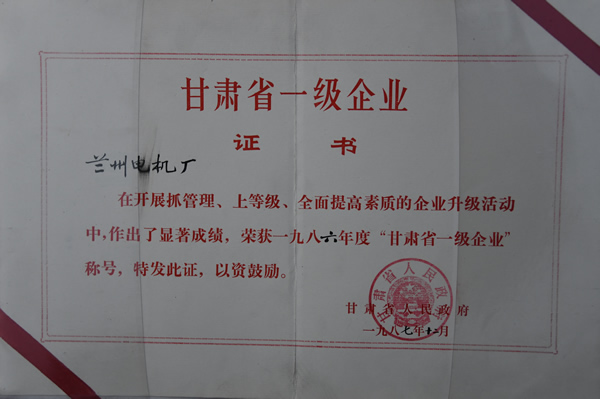 甘肃省一级企业
证 书
兰州电机厂
在开展抓管理、上等级、全面提高素质的企业升级活动
中,作出了显著成绩，荣获一九八六年度“甘肃省一级企业”
称号，特发此证，以资鼓励。
甘肃省人民政府
甘肃省人民政府
一九八七年十二月